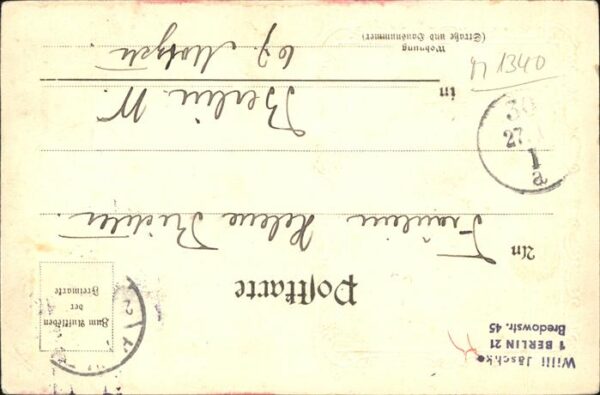 Willi Jäschke
1 BERLIN 21
Bredowstr. 45
Postkarte
Zum Aufkleben
der
Freimarke
An Fräulein Helene Richter
in Berlin W.
Wohnung
(Straße und Hausnummer)
1340
27.
1
a